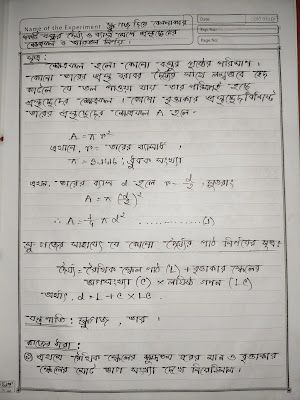 Name of the Experiment স্ক্রু গজ দিয়ে বেলনাকার
Date:
Page No.:
বস্তুর দৈর্ঘ্য ও ব্যাস মেপে প্রস্থচ্ছেদের
ক্ষেত্রফল ও আয়তন নির্ণয়।
তত্ত্ব:
ক্ষেত্রফল হলো কোনো বস্তুর পৃষ্ঠের পরিমাণ।
কোনো তারের প্রস্থ বরাবর দৈর্ঘ্যের সাথে লম্বভাবে ছেদ
করলে যে তল পাওয়া যায় তার পরিমাণই হচ্ছে
প্রস্থচ্ছেদের ক্ষেত্রফল। কোনো বৃত্তাকার প্রস্থচ্ছেদ বিশিষ্ট
তারের প্রস্থচ্ছেদের ক্ষেত্রফল A হলে-
A = π r²
এখানে, r = তারের ব্যাসার্ধ
π = 3.1416; ধ্রুবক সংখ্যা
এখন, তারের ব্যাস d হলে r = d/2, সুতরাং
A = π(d/2)²
∴ A = 1/4 π d² ............... (1)
স্ক্রু-গজের সাহায্যে যে কোনো দৈর্ঘ্যের পাঠ নির্ণয়ের সূত্র:
দৈর্ঘ্য = রৈখিক স্কেল পাঠ (L) + বৃত্তাকার স্কেলের
ভাগসংখ্যা (C) × লঘিষ্ঠ গণন (LC)
অর্থাৎ, d = L + C × LC.
যন্ত্রপাতি: স্ক্রুগজ, তার।
কাজের ধারা:
প্রথমে রৈখিক স্কেলের ক্ষুদ্রতম ঘরের মান ও বৃত্তাকার
স্কেলের মোট ভাগ সংখ্যা দেখে নিয়েছিলাম।